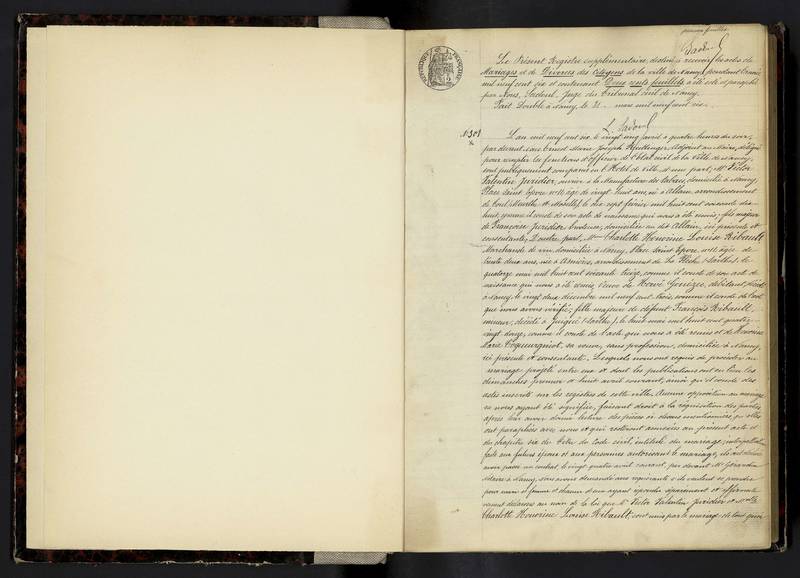 premier feuillet
Sadoul
RÉPUBLIQUE FRANÇAISE
Le Présent Registre supplémentaire, destiné à recevoir les actes de
Mariages et de Divorces des Citoyens de la ville de Nancy pendant l'année
mil neuf cent six et contenant Deux cents feuillets a été coté et paraphé
par Nous, Sadoul, Juge au Tribunal civil de Nancy.
Fait Double à Nancy, le 31 mars mil neuf cent six.
L. Sadoul
N 301
L'an mil neuf cent six, le vingt cinq avril à quatre heures du soir,
par devant nous Ernest Marie Joseph Adjoint au Maire, délégué
pour remplir les fonctions d'officier de l'état civil de la Ville de Nancy,
sont publiquement comparus en l'Hôtel de Ville d'une part; Mr Victor
Valentin Juridier, ouvrier à la Manufacture des tabacs, domicilié à Nancy,
Place Saint Epvre âgé de vingt huit ans, né à Allain, arrondissement
de Toul (Meurthe et Moselle) le dix sept février mil huit cent soixante dix
huit, comme il conste de son acte de naissance qui nous a été remis; fils majeur
de Françoise Juridier brodeuse, domiciliée au dit Allain, ici présente et
consentante, D'autre part, Mme Charlotte Honorine Louise Ribault
Marchande de vin, domiciliée à Nancy, Place Saint Epvre âgée de
trente deux ans, née à Asnières, arrondissement de La Flèche (Sarthe), le
quatorze mai mil huit cent soixante treize, comme il conste de son acte de
naissance qui nous a été remis, veuve de Hervé débitant, décédé
à Nancy, le vingt deux décembre mil neuf cent trois, comme il conste de l'acte
que nous avons vérifié; fille majeure de défunt François Ribault,
mineur, décédé à Juigné (Sarthe), le huit mai mil huit cent quatre
vingt douze, comme il conste de l'acte qui nous a été remis et de
Marie sa veuve, sans profession, domiciliée à Nancy,
ici présente et consentante. Lesquels nous ont requis de procéder au
mariage projeté entre eux et dont les publications ont eu lieu les
dimanches premier et huit avril courant, ainsi qu'il conste des
actes inscrits sur les registres de cette ville. Aucune opposition au mariage
ne nous ayant été signifiée, faisant droit à la réquisition des parties,
après leur avoir donné lecture des pièces ci-dessus mentionnées qu'elles
ont paraphées avec nous et qui resteront annexées au présent acte et
du chapitre six du titre du Code civil, intitulé du mariage; interpellation
faite aux futurs époux et aux personnes autorisant le mariage, ils ont déclaré
avoir passé un contrat, le vingt quatre avril courant, par devant Me
notaire à Nancy, nous avons demandé aux requérants s'ils veulent se prendre
pour mari et femme et chacun d'eux ayant répondu séparément et affirmativement
avons déclaré au nom de la loi que Mr Victor Valentin Juridier et Mme
Charlotte Honorine Louise Ribault, sont unis par le mariage, de tout quoi